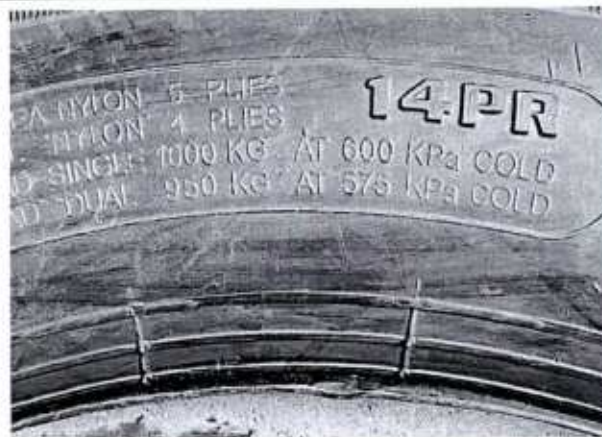 NYLON 5 PLIES
14PR
NYLON 4 PLIES
SINGLE 1000 KG AT 600 KPa COLD
DUAL 950 KG AT 575 KPa COLD